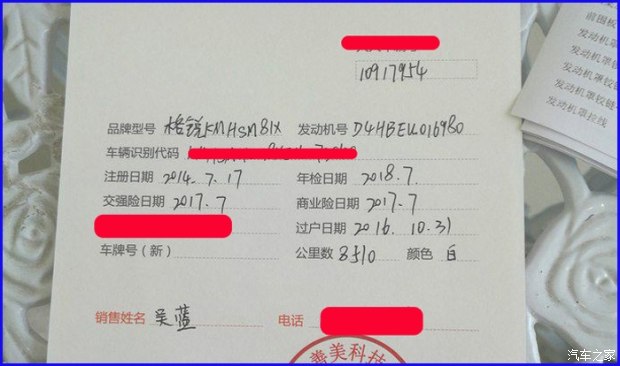 10917954
品牌型号 格锐KMHSM81X 发动机号 D4HBEU016980
车辆识别代码
注册日期 2014.7.17 年检日期 2018.7
交强险日期 2017.7 商业险日期 2017.7
过户日期 2016.10.31
车牌号（新） 公里数 8510 颜色 白
销售姓名 吴蓝 电话
善美科技
前围板
发动机
发动机罩
发动机罩铰
发动机罩铰链
发动机罩拉线
汽车之家